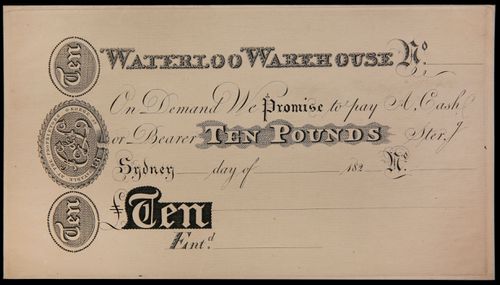 Ten
WATERLOO WAREHOUSE No.
On Demand We Promise to pay A. Cash
or Bearer TEN POUNDS Ster.g
Sydney day of 182 No.
£ Ten
Ten
Ent.d